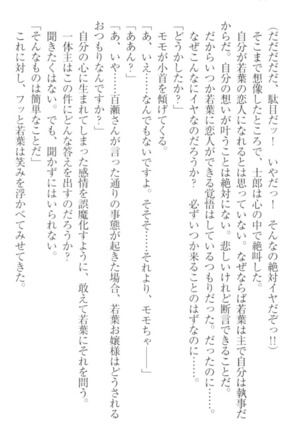 (だだだだだ、駄目だッ！　いやだっ！　そんなの絶対イヤだぞっ!!)
そこまで想像したところで、士郎は心の中で絶叫した。
自分が若葉の恋人になれるとは思っていない。なぜならば若葉は主で自分は執事だ
からだ。自分の想いが叶うことは絶対にない。悲しいけれど断言できることだ。
だからいつか若葉に恋人ができる覚悟はしているつもりだった。だったのに……。
なぜこんなにイヤなのだろうか？　必ずいつか来ることのはずなのに……。
「どうかしたか？」
モモが小首を傾げてくる。
「あ、いえ……なんでもないですよ。そそそ……それより、モモちゃ――」
「ああん？」
「あ、いや……百瀬さんが言った通りの事態が起きた場合、若葉お嬢様はどうされる
おつもりなんですか？」
自分の心に生まれてしまった感情を誤魔化すように、敢えて若葉にそれを問う。
一体主はこの件にどんな答えを出すのだろうか？
聞きたくはない。でも、聞かずにはいられない。
「そんなものは簡単なことだ」
これに対し、フッと若葉は笑みを浮かべてみせてきた。